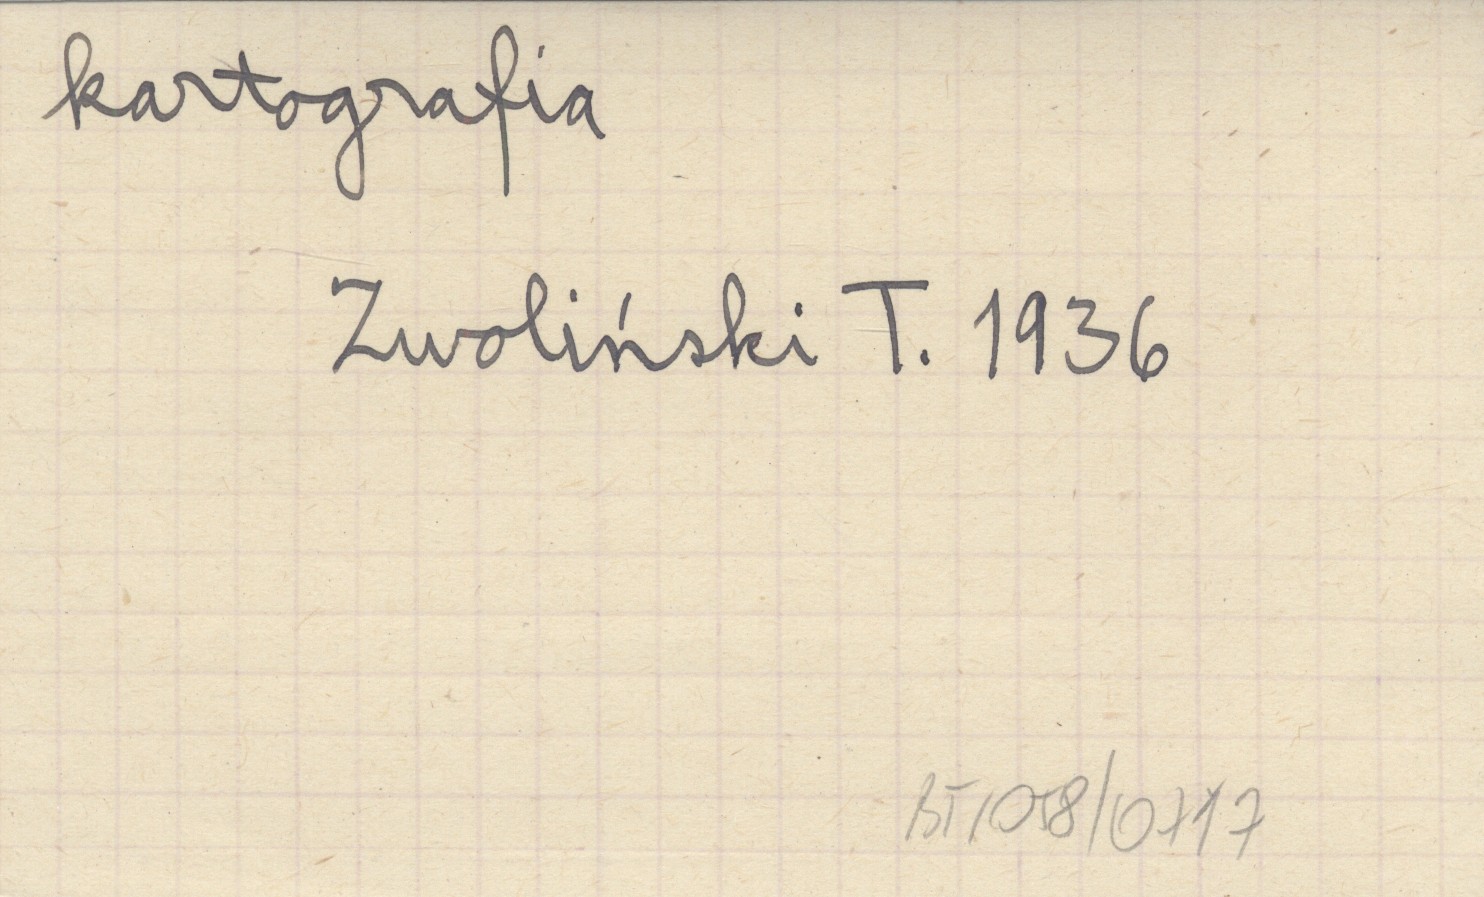 kartografia
Zwoliński T. 1936
BT/058/0717